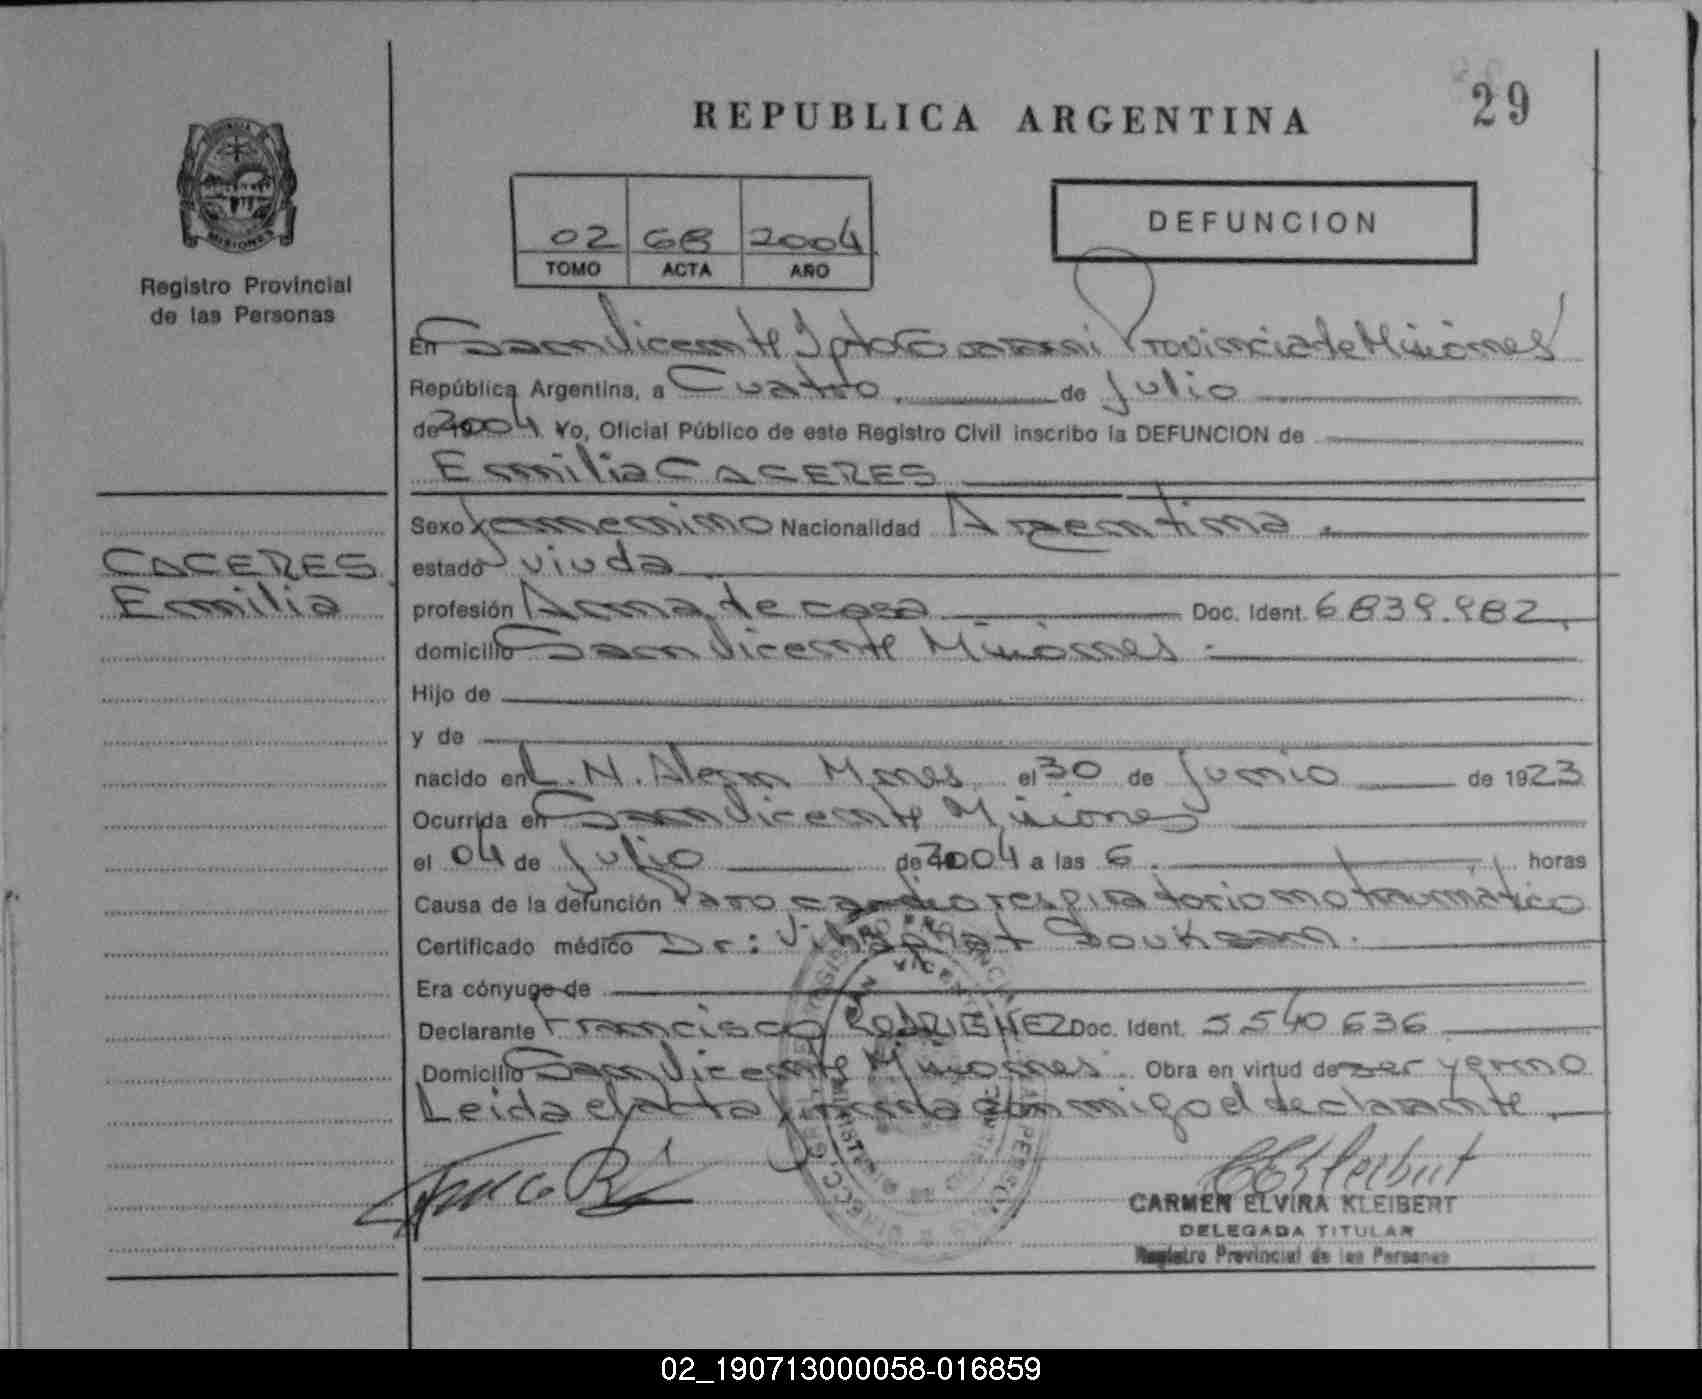 29
REPUBLICA ARGENTINA
PROVINCIA
MISIONES
Registro Provincial
de las Personas
02 68 2004
TOMO ACTA AÑO
DEFUNCION
En San Vicente Dpto Guarani Provincia de Misiones
República Argentina, a Cuatro de Julio
de 2004 Yo, Oficial Público de este Registro Civil inscribo la DEFUNCION de
Emilia CACERES
CACERES
Emilia
Sexo femenino Nacionalidad Argentina
estado viuda
profesión Ama de casa Doc. Ident. 6839.982
domicilio San Vicente Misiones
Hijo de
y de
nacido en L.N. Alem Mnes el 30 de Junio de 1923
Ocurrida en San Vicente Misiones
el 04 de Julio de 2004 a las 6 horas
Causa de la defunción Paro cardio respiratorio no traumático
Certificado médico Dr:
Era cónyuge de
Declarante Francisco RODRIGUEZ Doc. Ident. 5540636
Domicilio San Vicente Misiones Obra en virtud de ser yerno
Leida el acta firmada conmigo el declarante
CARMEN ELVIRA KLEIBERT
DELEGADA TITULAR
Registro Provincial de las Personas
02_190713000058-016859